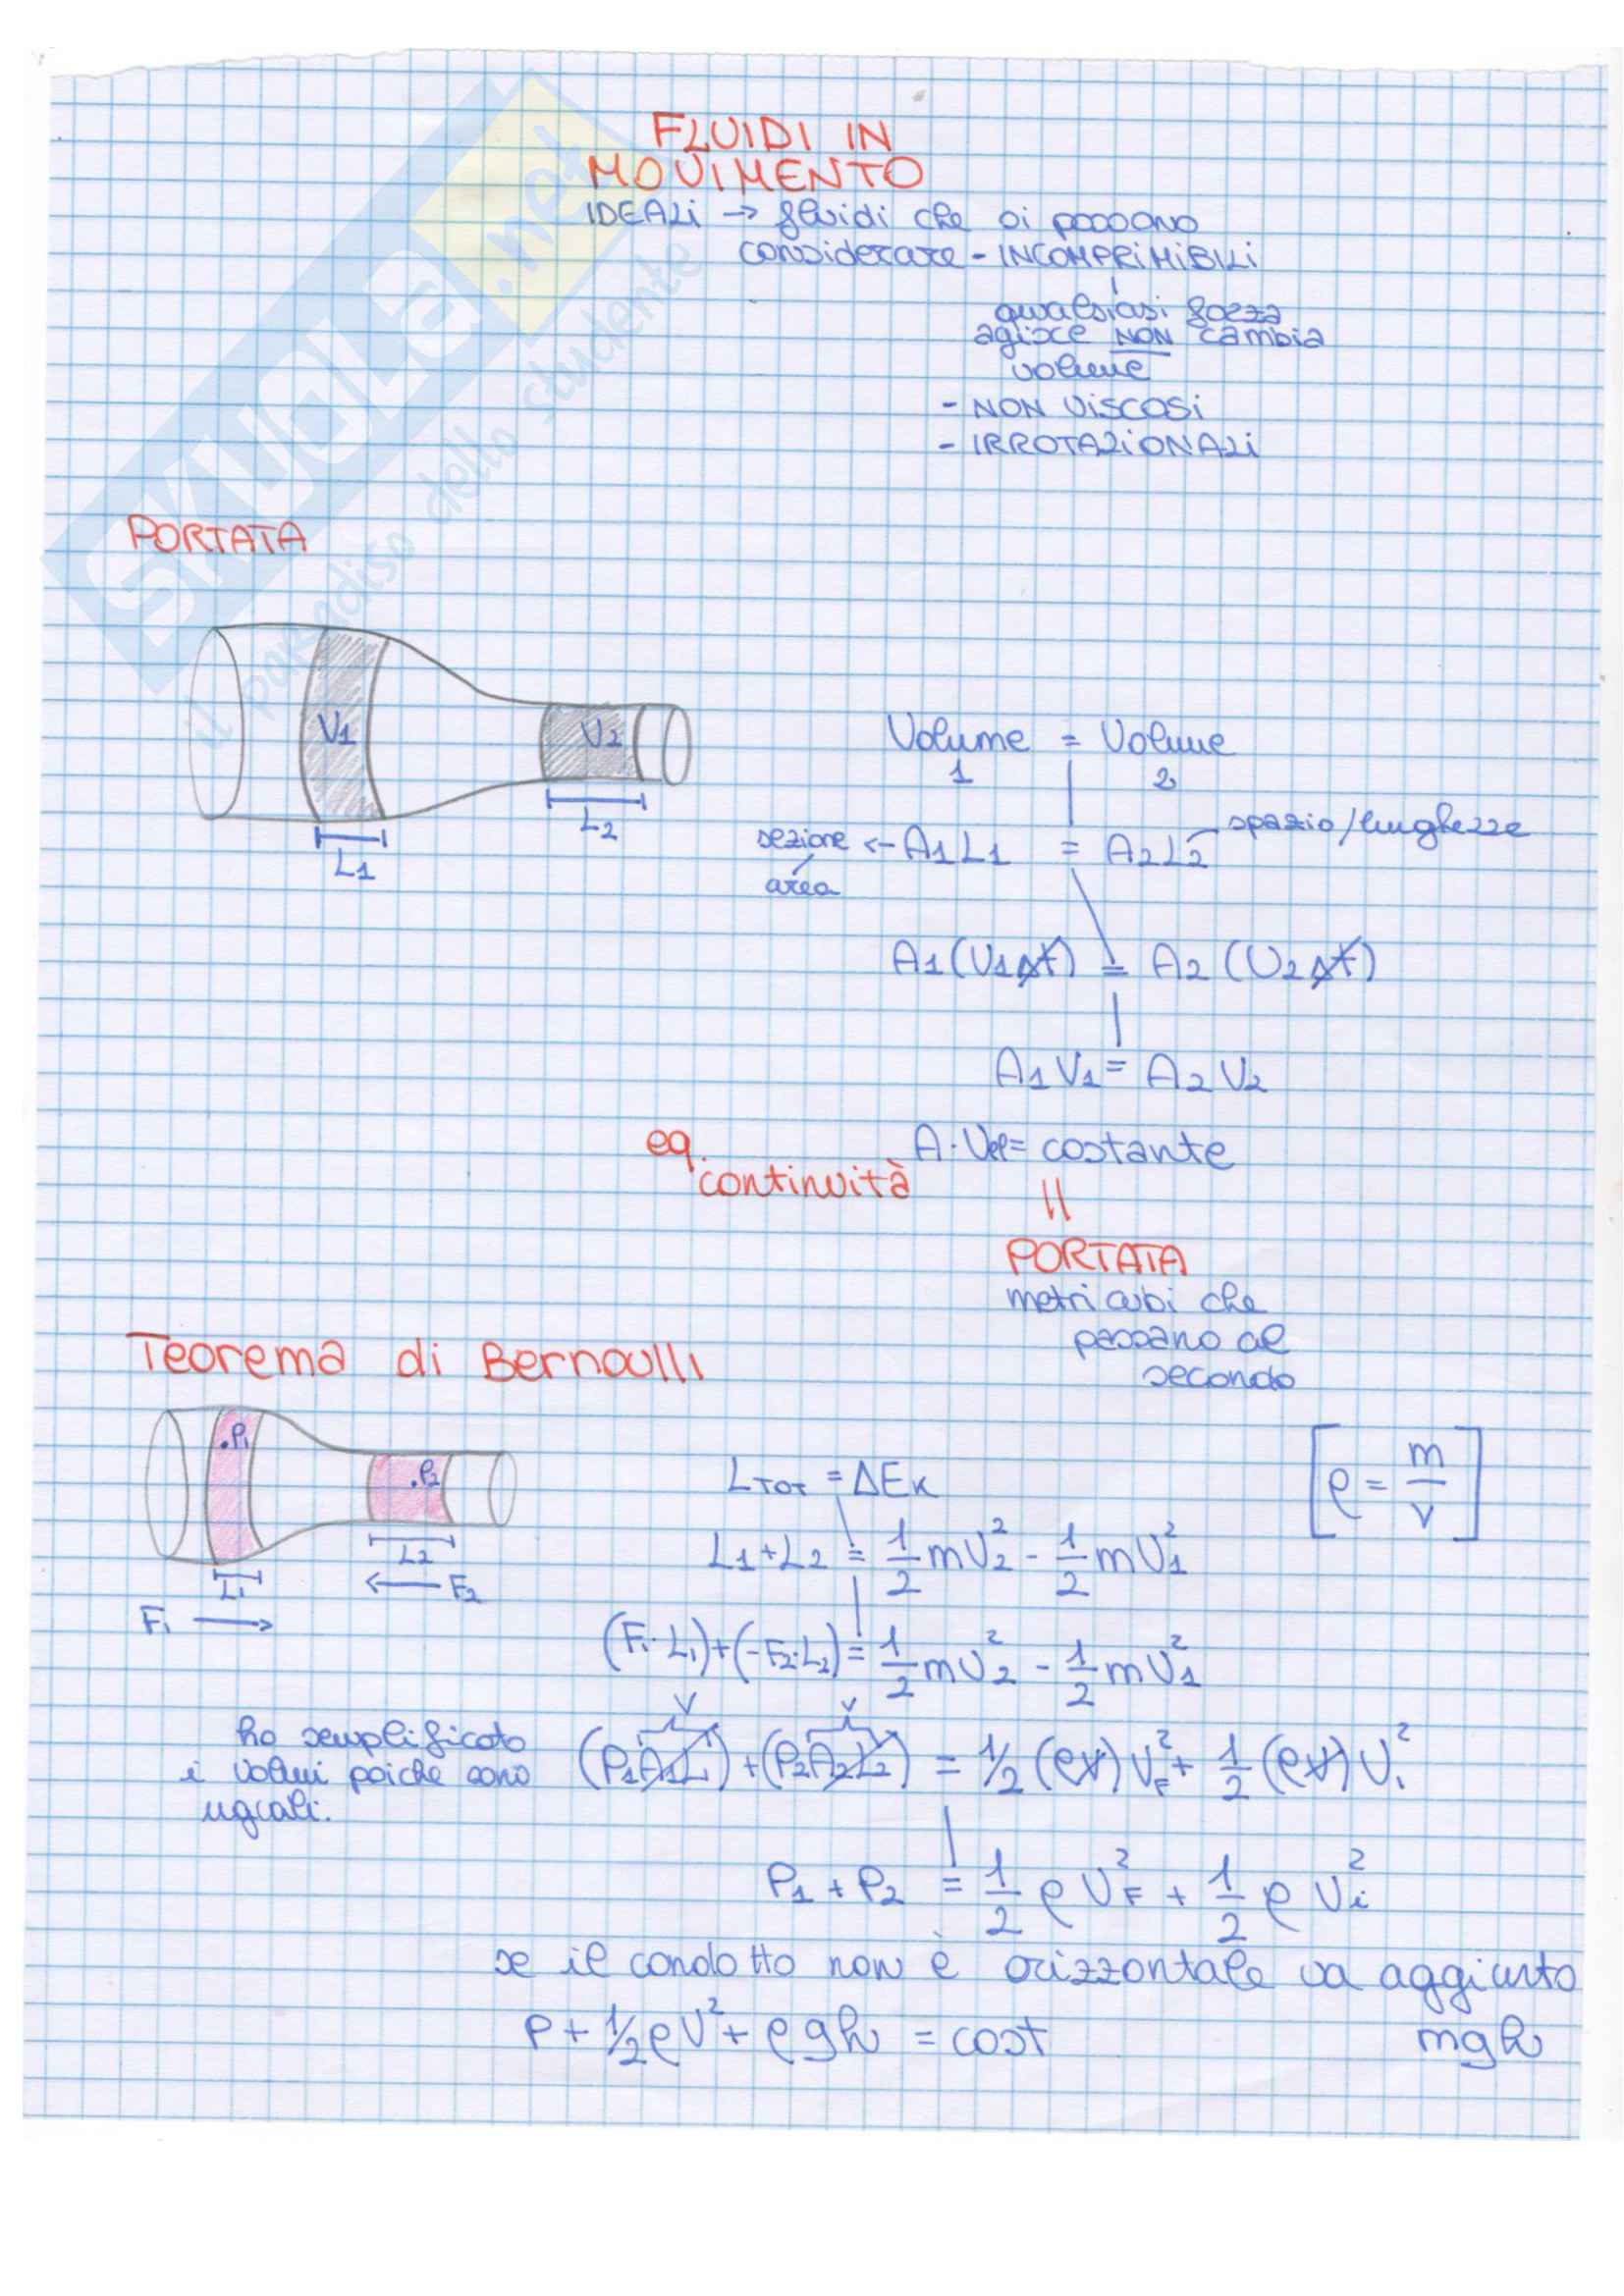 FLUIDI IN
MOVIMENTO
IDEALi → fluidi che si possono
considerare - INCOMPRIMIBILI
qualsiasi forza
agisce NON cambia
volume
- NON VISCOSi
- IRROTAZIONALi
SKUOLA.net
il paradiso dello studente
PORTATA
V1
V2
L1
L2
Volume = Volume
1 2
sezione ← A1L1 = A2L2 - spazio/lunghezze
area
A1(V1Δt) = A2(V2Δt)
A1V1 = A2V2
eq. continuità
A·Vel= costante
||
PORTATA
metri cubi che
passano al
secondo
Teorema di Bernoulli
.P1
.P2
L1
L2
F1 →
← F2
[ρ = m/V]
LTOT = ΔEK
L1+L2 = 1/2 mV2² - 1/2 mV1²
(F1·L1)+(-F2·L2) = 1/2 mV2² - 1/2 mV1²
V V
ho semplificato
i volumi poiche sono
uguali.
(P1A1L1)+(P2A2L2) = 1/2 (ρV)VF² + 1/2 (ρV)Vi²
P1 + P2 = 1/2 ρ VF² + 1/2 ρ Vi²
se il condotto non è orizzontale va aggiunto
mgh
P + 1/2 ρV² + ρgh = cost